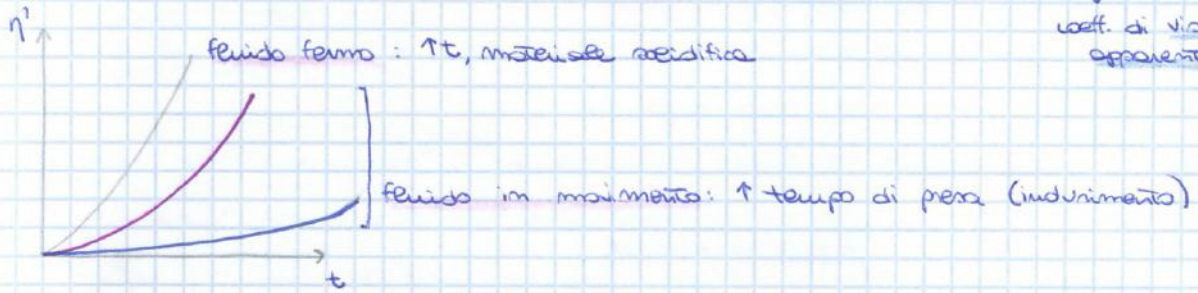 η'
coeff. di
apparente
fluido fermo : ↑t, materiale solidifica
fluido in movimento: ↑ tempo di presa (indurimento)
t